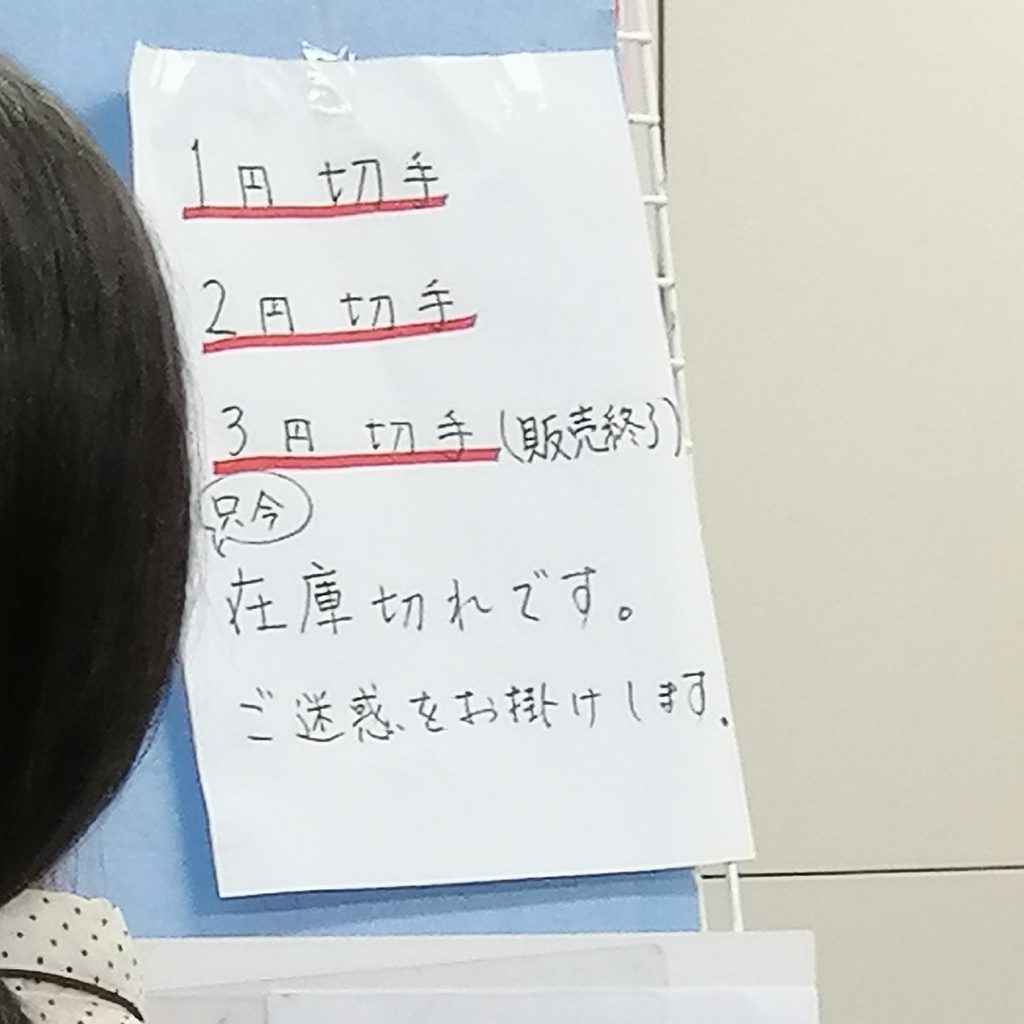 1円 切手
2円 切手
3円 切手(販売終了)
只今
在庫切れです。
ご迷惑をお掛けします.